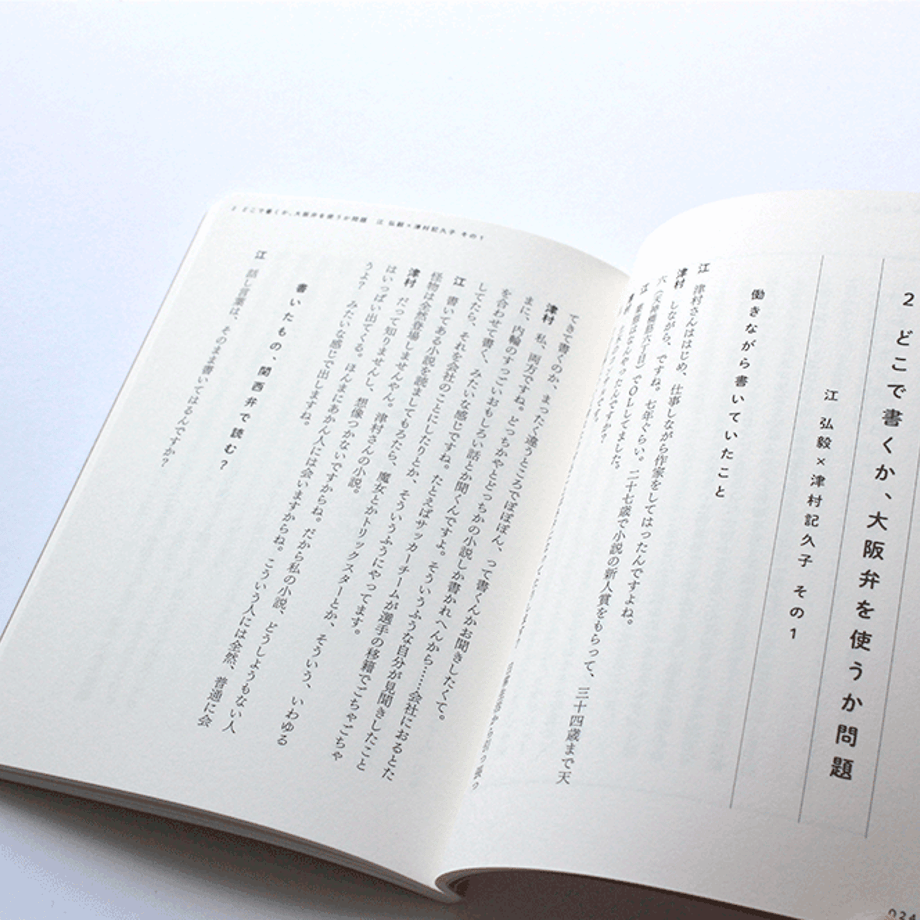 2 どこで書くか、大阪弁を使うか問題
江 弘毅×津村記久子 その1
働きながら書いていたこと
江 津村さんははじめ、仕事しながら作家をしてはったんですよね。
津村 しながら、ですね。七年ぐらい。二十七歳で小説の新人賞をもらって、三十四歳まで天
六(天神橋筋六丁目)でOLしてました。
024
2 どこで書くか、大阪弁を使うか問題 江 弘毅×津村記久子 その1
てきて書くのか、まったく違うところでぽぽぽん、って書くんかお聞きしたくて。
津村 私、両方ですね。どっちかやととっちかの小説しか書かれへんから……会社におるとた
まに、内輪のすっごいおもしろい話とか聞くんですよ。そういうふうな自分が見聞きしたこと
を合わせて書く、みたいな感じですね。たとえばサッカーチームが選手の移籍でごちゃごちゃ
してたら、それを会社のことにしたりとか、そういうふうにやってます。
江 書いてある小説を読ましてもろたら、魔女とかトリックスターとか、そういう、いわゆる
怪物は全然登場しませんやん。津村さんの小説。
津村 だって知りませんし、想像つかないですからね。だから私の小説、どうしようもない人
はいっぱい出てくる。ほんまにあかん人には会いますからね。こういう人には全然、普通に会
うよ? みたいな感じで出しますね。
書いたもの、関西弁で読む?
江 話し言葉は、そのまま書いてはるんですか?